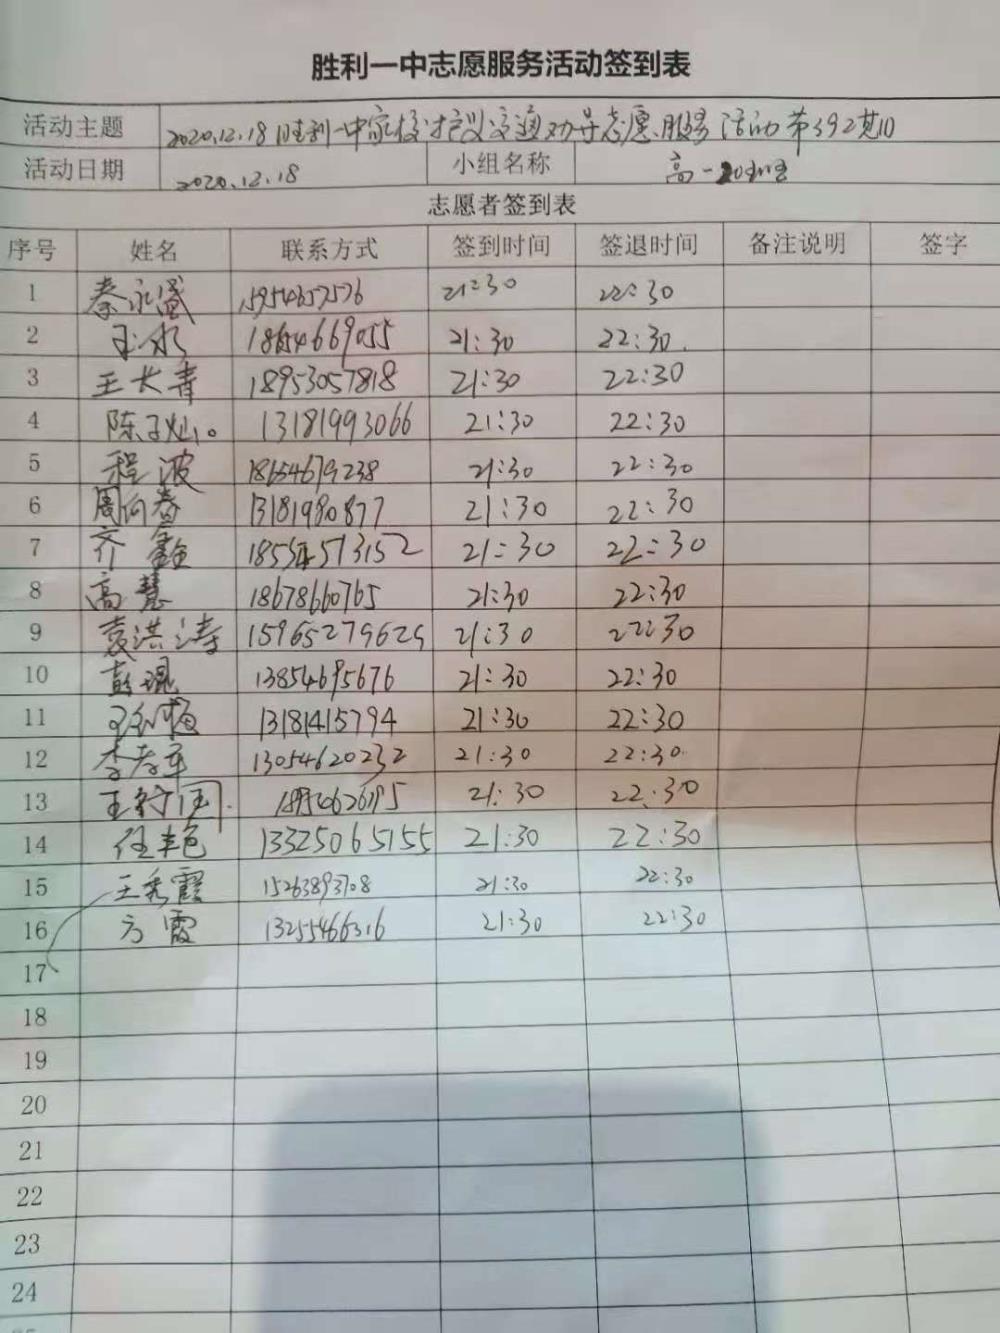 胜利一中志愿服务活动签到表
活动主题 2020.12.18胜利一中家校护学交通劝导志愿服务活动第392期
活动日期 2020.12.18 小组名称 高一20班
志愿者签到表
序号 姓名 联系方式 签到时间 签退时间 备注说明 签字
1 秦永盛 15954657576 21:30 22:30
2 王冰 18654669055 21:30 22:30
3 王长青 18953057818 21:30 22:30
4 陈子灿 13181993066 21:30 22:30
5 程波 18654679238 21:30 22:30
6 周向春 13181980877 21:30 22:30
7 齐鑫 21:30 22:30
8 高慧 18678660765 21:30 22:30
9 袁洪涛 15965279629 21:30 22:30
10 彭琨 13854695676 21:30 22:30
11 13181415794 21:30 22:30
12 李孝军 13054620232 21:30 22:30
13 21:30 22:30
14 任丰艳 13325065155 21:30 22:30
15 王秀霞 15263893708 21:30 22:30
16 方霞 13255466316 21:30 22:30
17
18
19
20
21
22
23
24